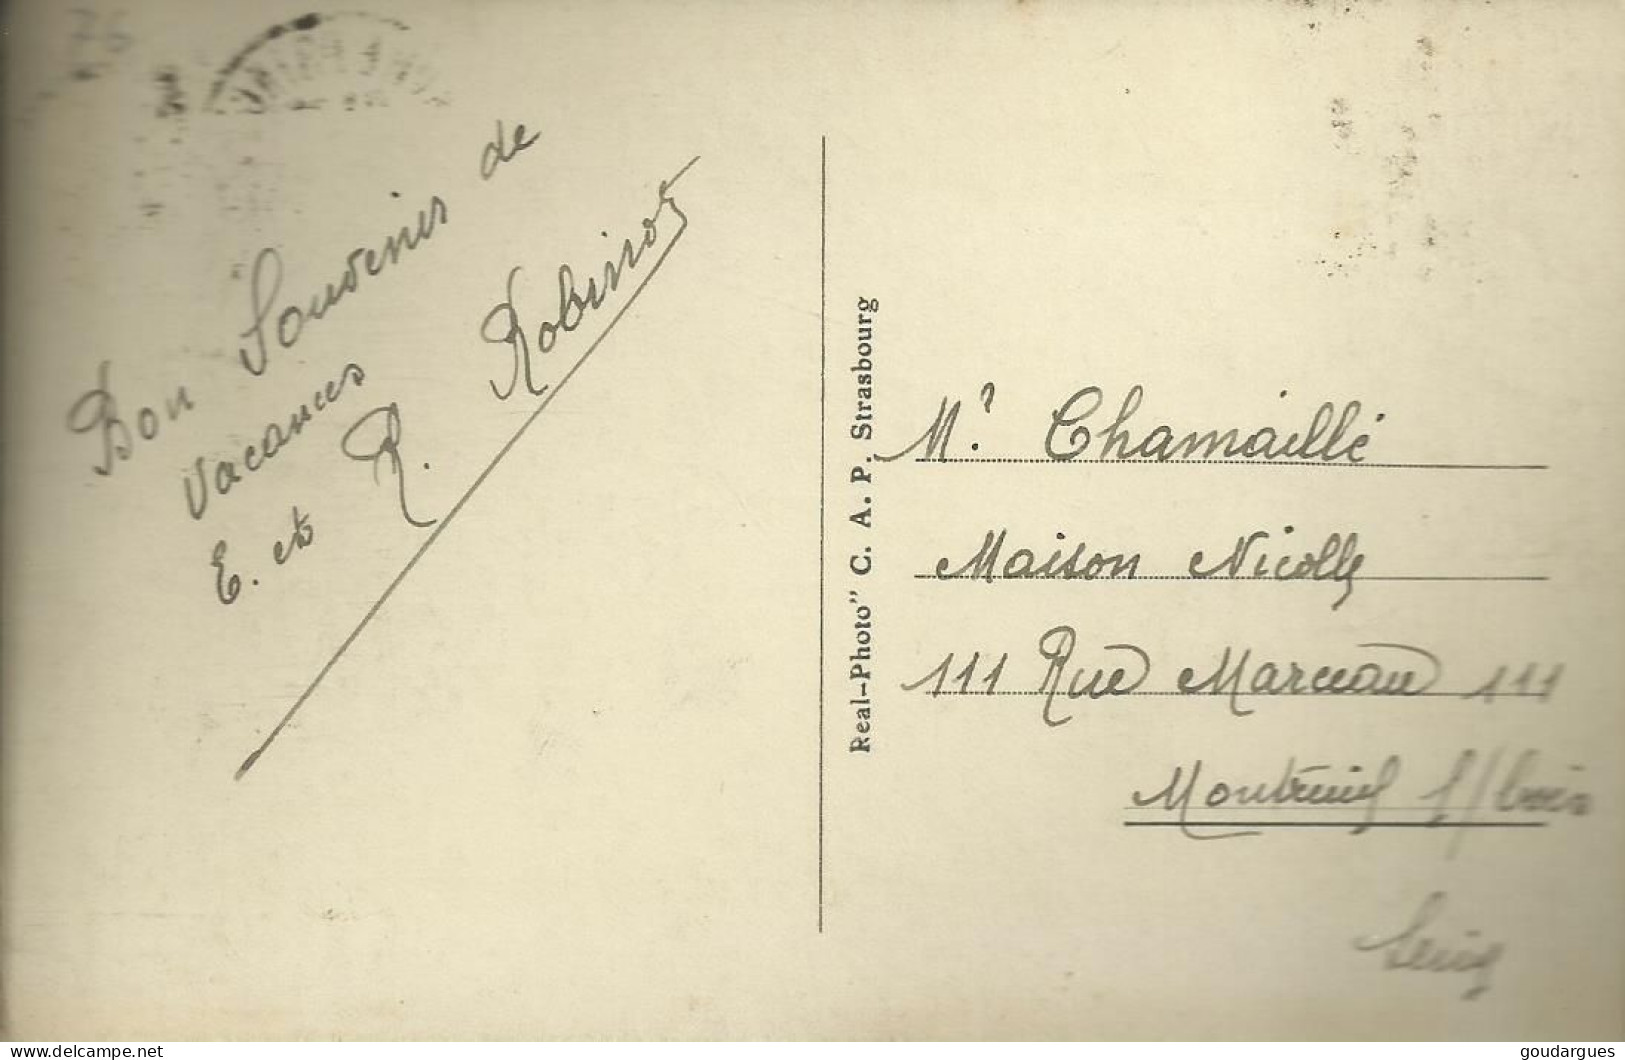 76
Bon Souvenirs de
vacances
E. et R. Robinot
Real-Photo" C. A. P. Strasbourg
Mr. Chamaillé
Maison Nicolle
111 Rue Marceau 111
Montreuil s/Bois
Seine
www.delcampe.net
goudargues